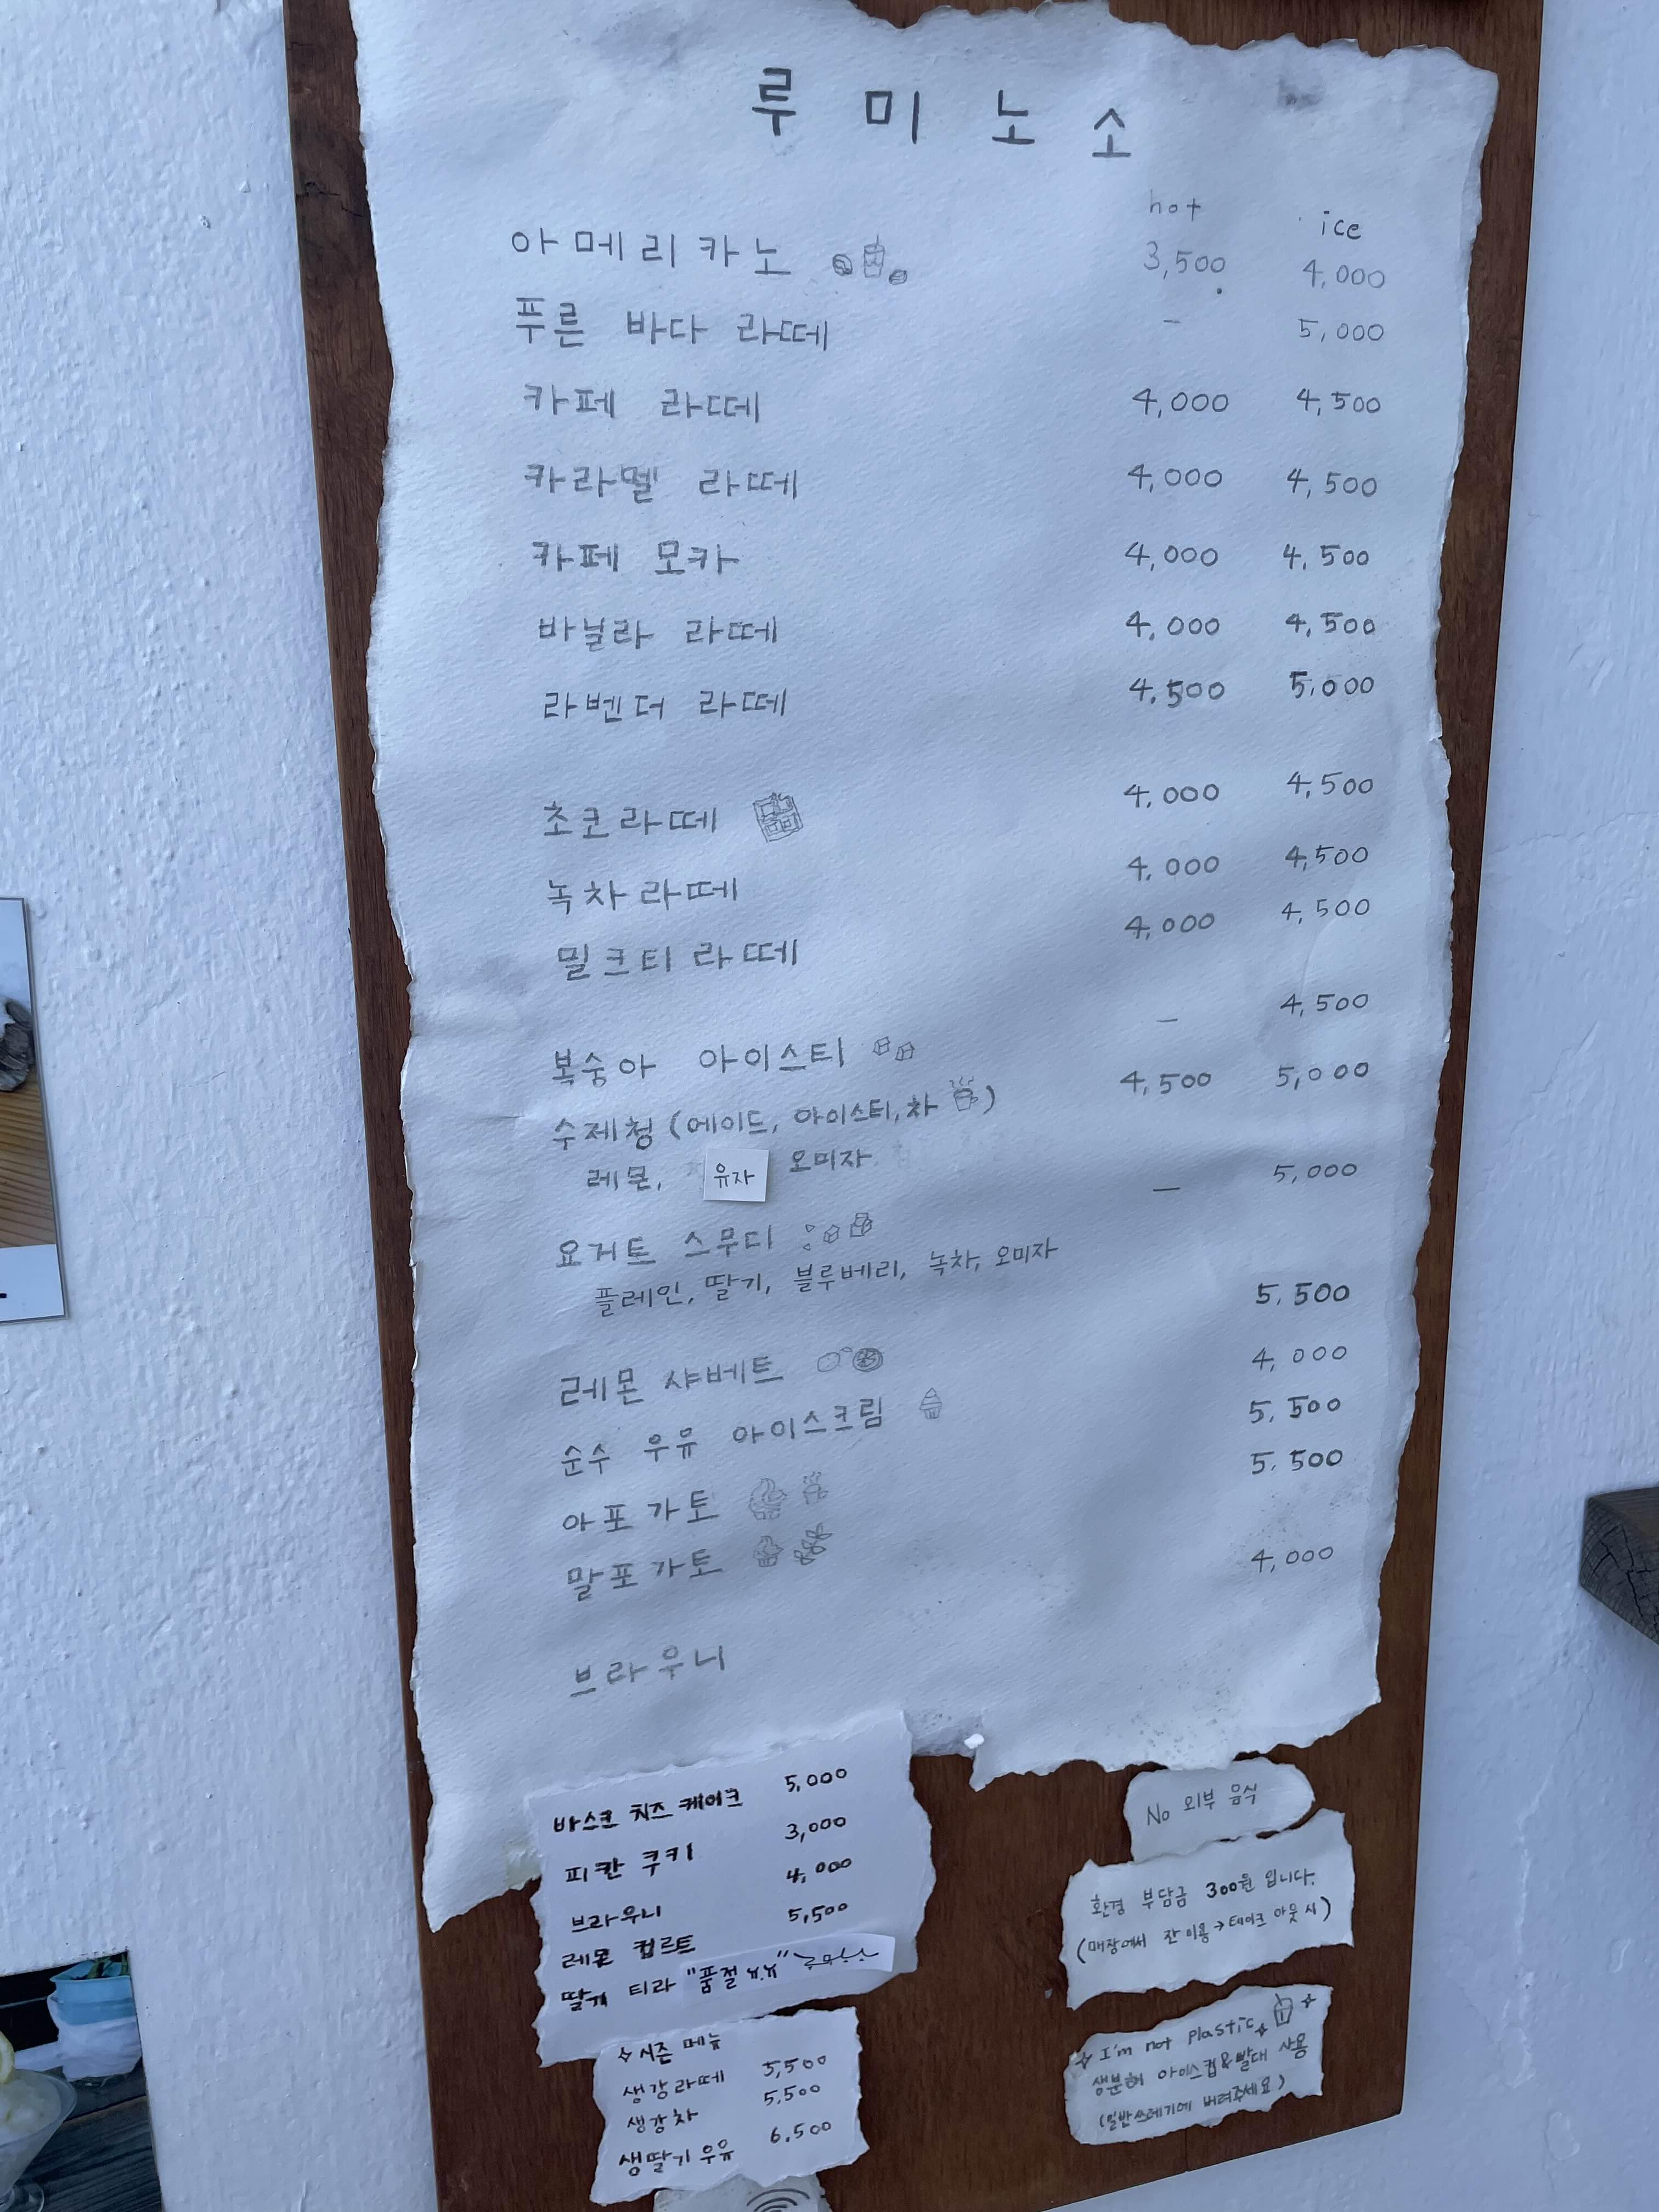 루미노소
hot ice
아메리카노 3,500 4,000
푸른 바다 라떼 - 5,000
카페 라떼 4,000 4,500
카라멜 라떼 4,000 4,500
카페 모카 4,000 4,500
바닐라 라떼 4,000 4,500
라벤더 라떼 4,500 5,000
초코라떼 4,000 4,500
녹차라떼 4,000 4,500
밀크티 라떼 4,000 4,500
복숭아 아이스티 - 4,500
수제청 (에이드, 아이스티, 차) 4,500 5,000
레몬, 유자 오미자
요거트 스무디 - 5,000
플레인, 딸기, 블루베리, 녹차, 오미자
레몬 샤베트 5,500
순수 우유 아이스크림 4,000
아포가토 5,500
말포가토 5,500
브라우니 4,000
바스크 치즈 케이크 5,000
피칸 쿠키 3,000
브라우니 4,000
레몬 컵르트 5,500
딸기 티라 "품절 ㅠㅠ"
시즌 메뉴
생강라떼 5,500
생강차 5,500
생딸기우유 6,500
No 외부 음식
환경 부담금 300원 입니다.
(매장에서 잔 이용 → 테이크 아웃 시)
I'm not plastic
생분해 아이스컵&빨대 사용
(일반쓰레기에 버려주세요)